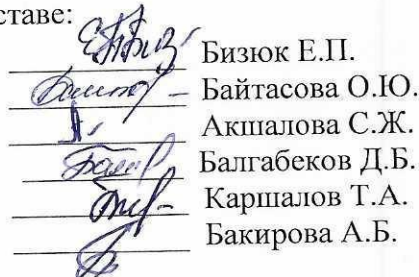 ставе:
Бизюк Е.П.
Байтасова О.Ю.
Акшалова С.Ж.
Балгабеков Д.Б.
Каршалов Т.А.
Бакирова А.Б.